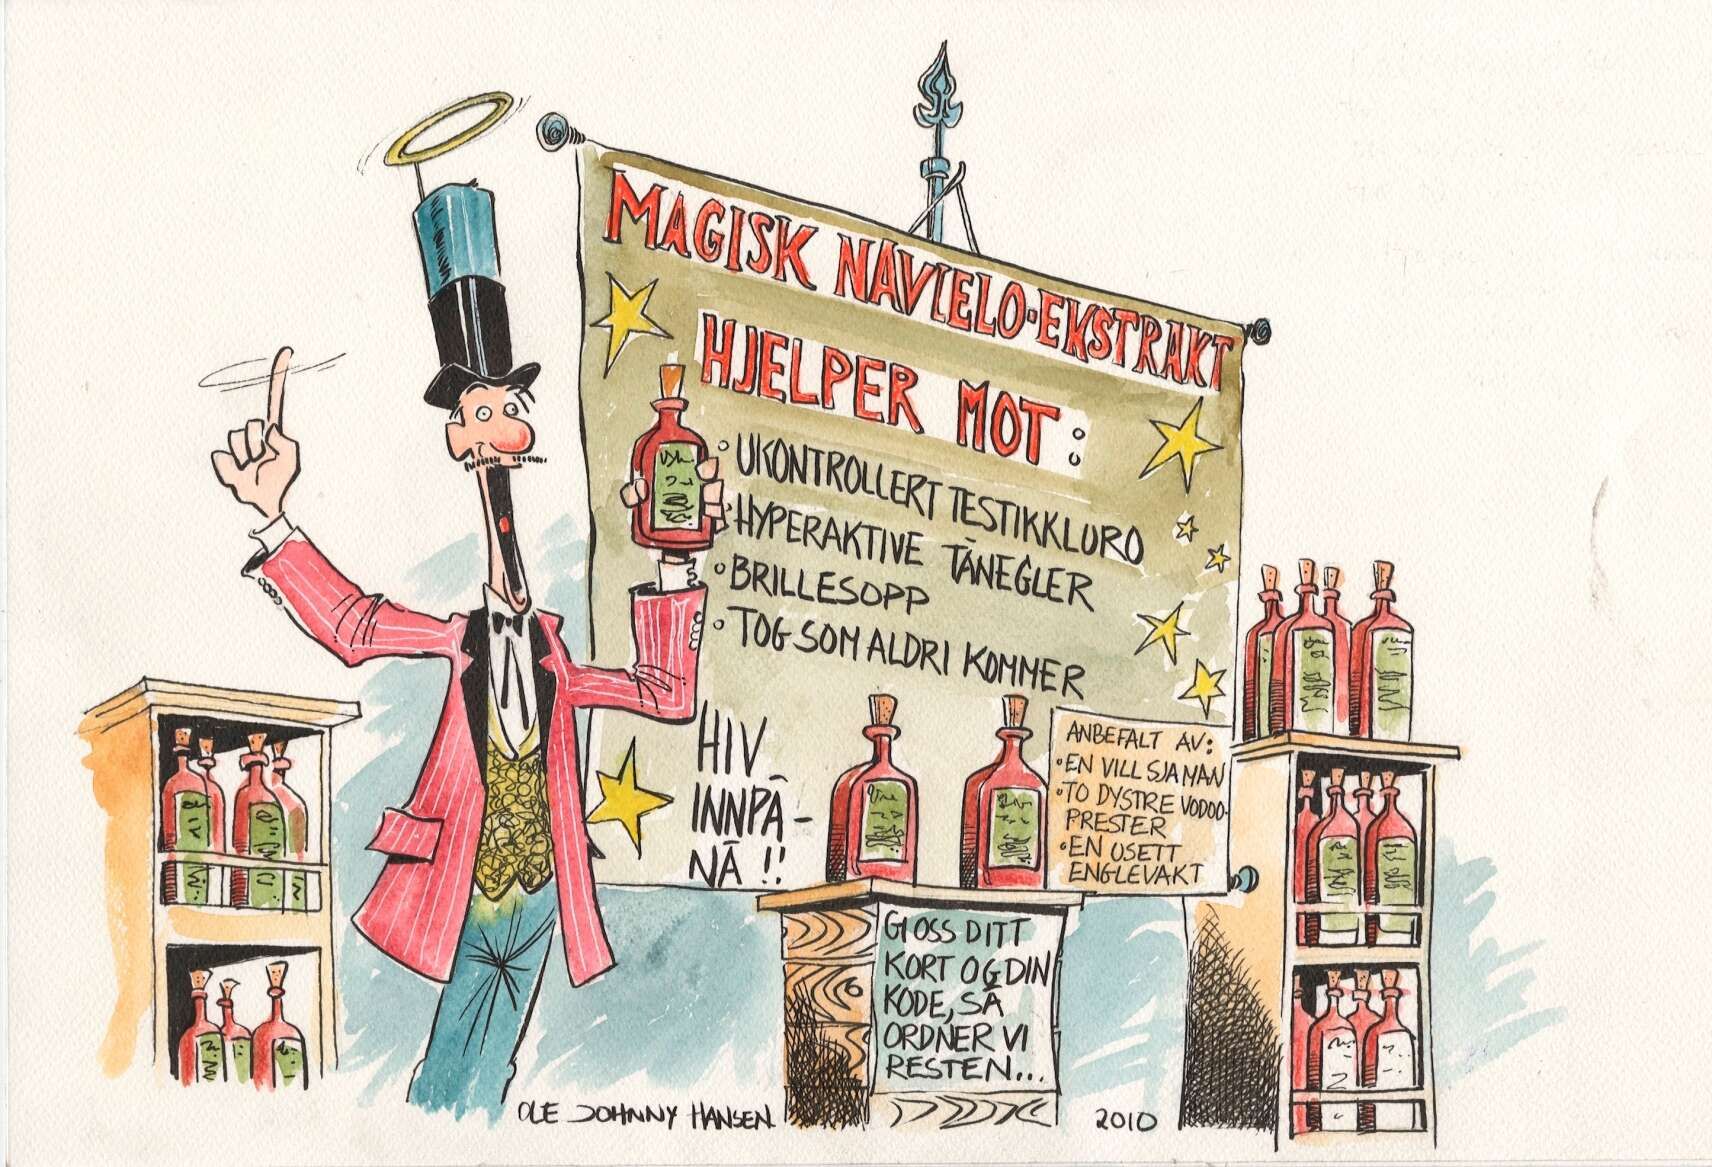 MAGISK NAVLELO-EKSTRAKT
HJELPER MOT:
UKONTROLLERT TESTIKKLURO
HYPERAKTIVE TÅNEGLER
BRILLESOPP
TOG SOM ALDRI KOMMER
HIV
INNPÅ-
NÅ!!
ANBEFALT AV:
• EN VILL SJAMAN
• TO DYSTRE VODOO-
PRESTER
• EN USETT
ENGLEVAKT
GI OSS DITT
KORT OG DIN
KODE, SÅ
ORDNER VI
RESTEN...
OLE JOHNNY HANSEN
2010